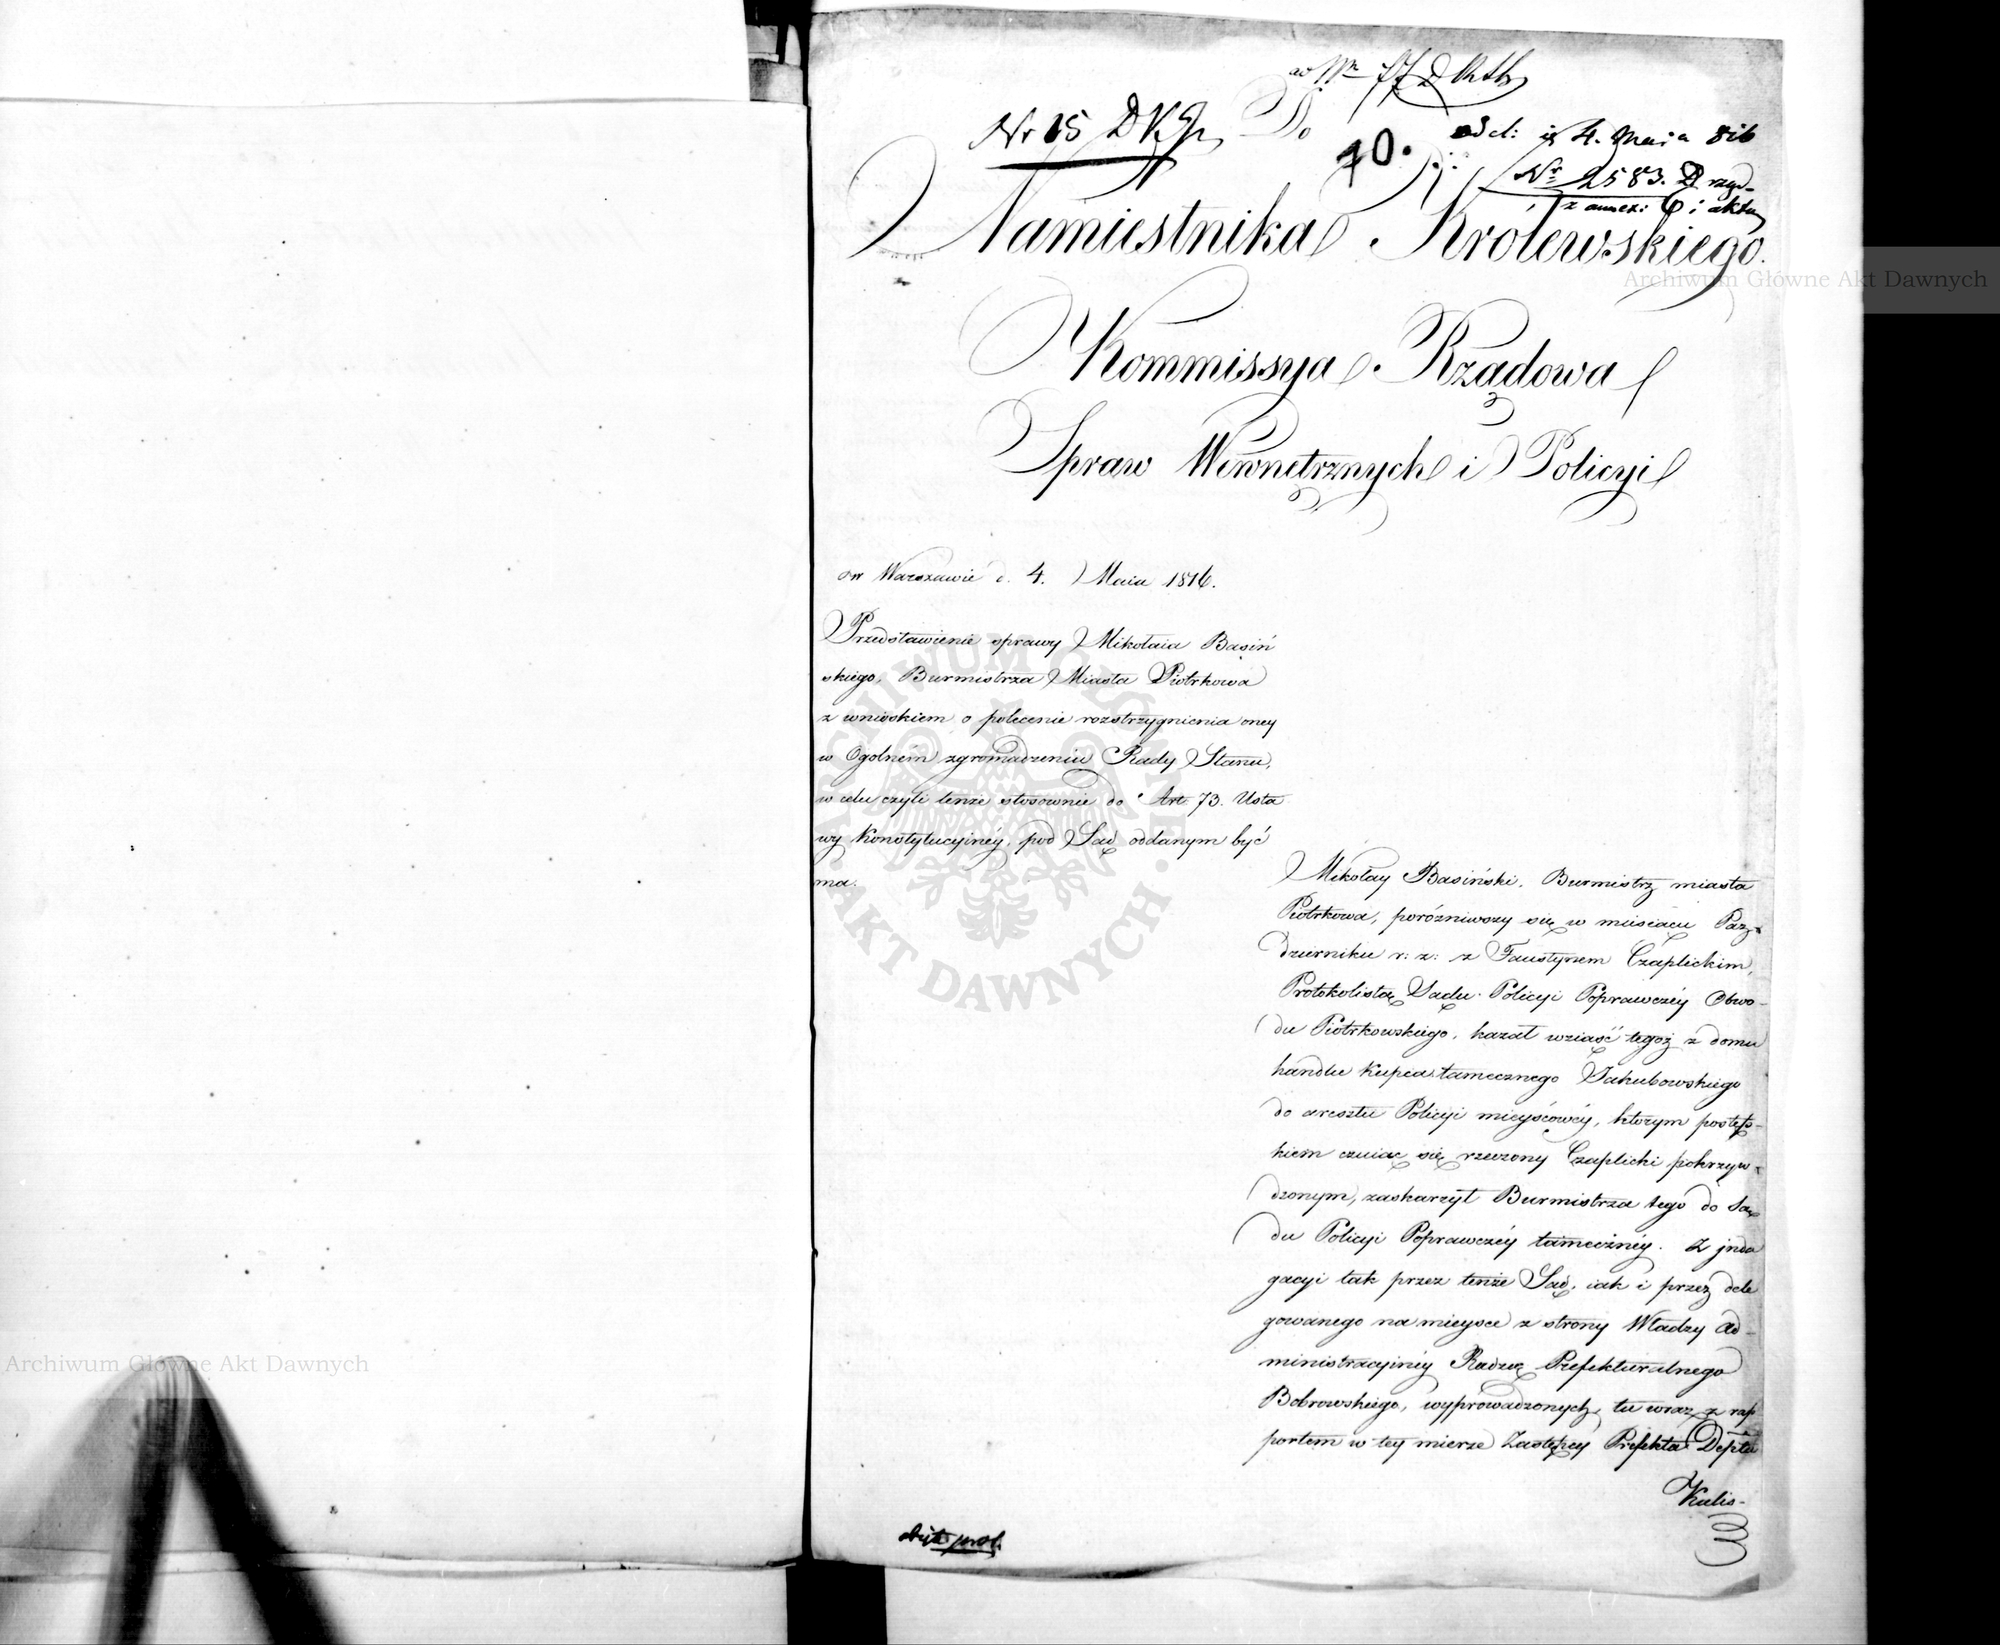 ad Nr 77 D
Nr 15 DKG
Do
10.
od d: 4. Maia 816
Nr 2583.
z annex: 6 i aktu
Namiestnika Królewskiego.
Kommissya Rządowa
Spraw Wewnętrznych i Policyi
w Warszawie d. 4. Maia 1816.
Przedstawienie sprawy Mikołaia Basiń
skiego, Burmistrza Miasta Piotrkowa
z wnioskiem o polecenie rozstrzygnienia oney
w Ogolném zgromadzeniu Rady Stanu,
w celu czyli tenże stosownie do Art. 73. Usta
wy Konstytucyinéy, pod Sąd oddanym być
ma.
Mikołay Basiński, Burmistrz miasta
Piotrkowa, poróżniwszy się w miesiącu Paz=
dzierniku r: z: z Faustynem Czaplickim,
Protokolistą Sądu Policyi Poprawczéy Obwo-
du Piotrkowskiego, kazał wziąść tegoż z domu
handlu Kupca tamecznego Jakubowskiego
do aresztu Policyi mieyscowéy, ktorym postęp-
kiem czuiąc się rzeczony Czaplicki pokrzyw=
dzonym, zaskarżył Burmistrza tego do Są
du Policyi Poprawczéy tamecznéy. Z jnda
gacyi tak przez tenże Sąd, iak i przez dele
gowanego na mieysce z strony Władzy Ad-
ministracyinéy Radzcę Prefekturalnego
Bobrowskiego, wyprowadzonych, tu wraz z rap
portem w tey mierze Zastępcy Prefekta Deptu
Kalis-
Archiwum Główne Akt Dawnych
Archiwum Główne Akt Dawnych
ARCHIWUM GŁÓWNE AKT DAWNYCH